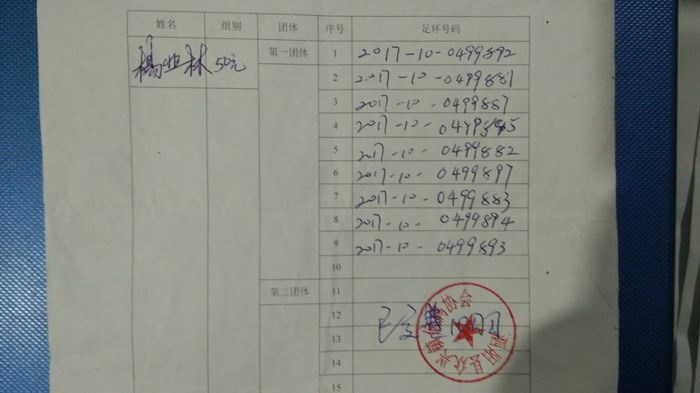 姓名 组别 团体 序号 足环号码
杨业林 50元 第一团体 1 2017-10-0499892
2 2017-10-0499881
3 2017-10-0499887
4 2017-10-
5 2017-10-0499882
6 2017-10-0499897
7 2017-10-0499883
8 2017-10-0499894
9 2017-10-0499893
10
第二团体 11
12
13
14
15
泗阳县众兴镇信鸽协会